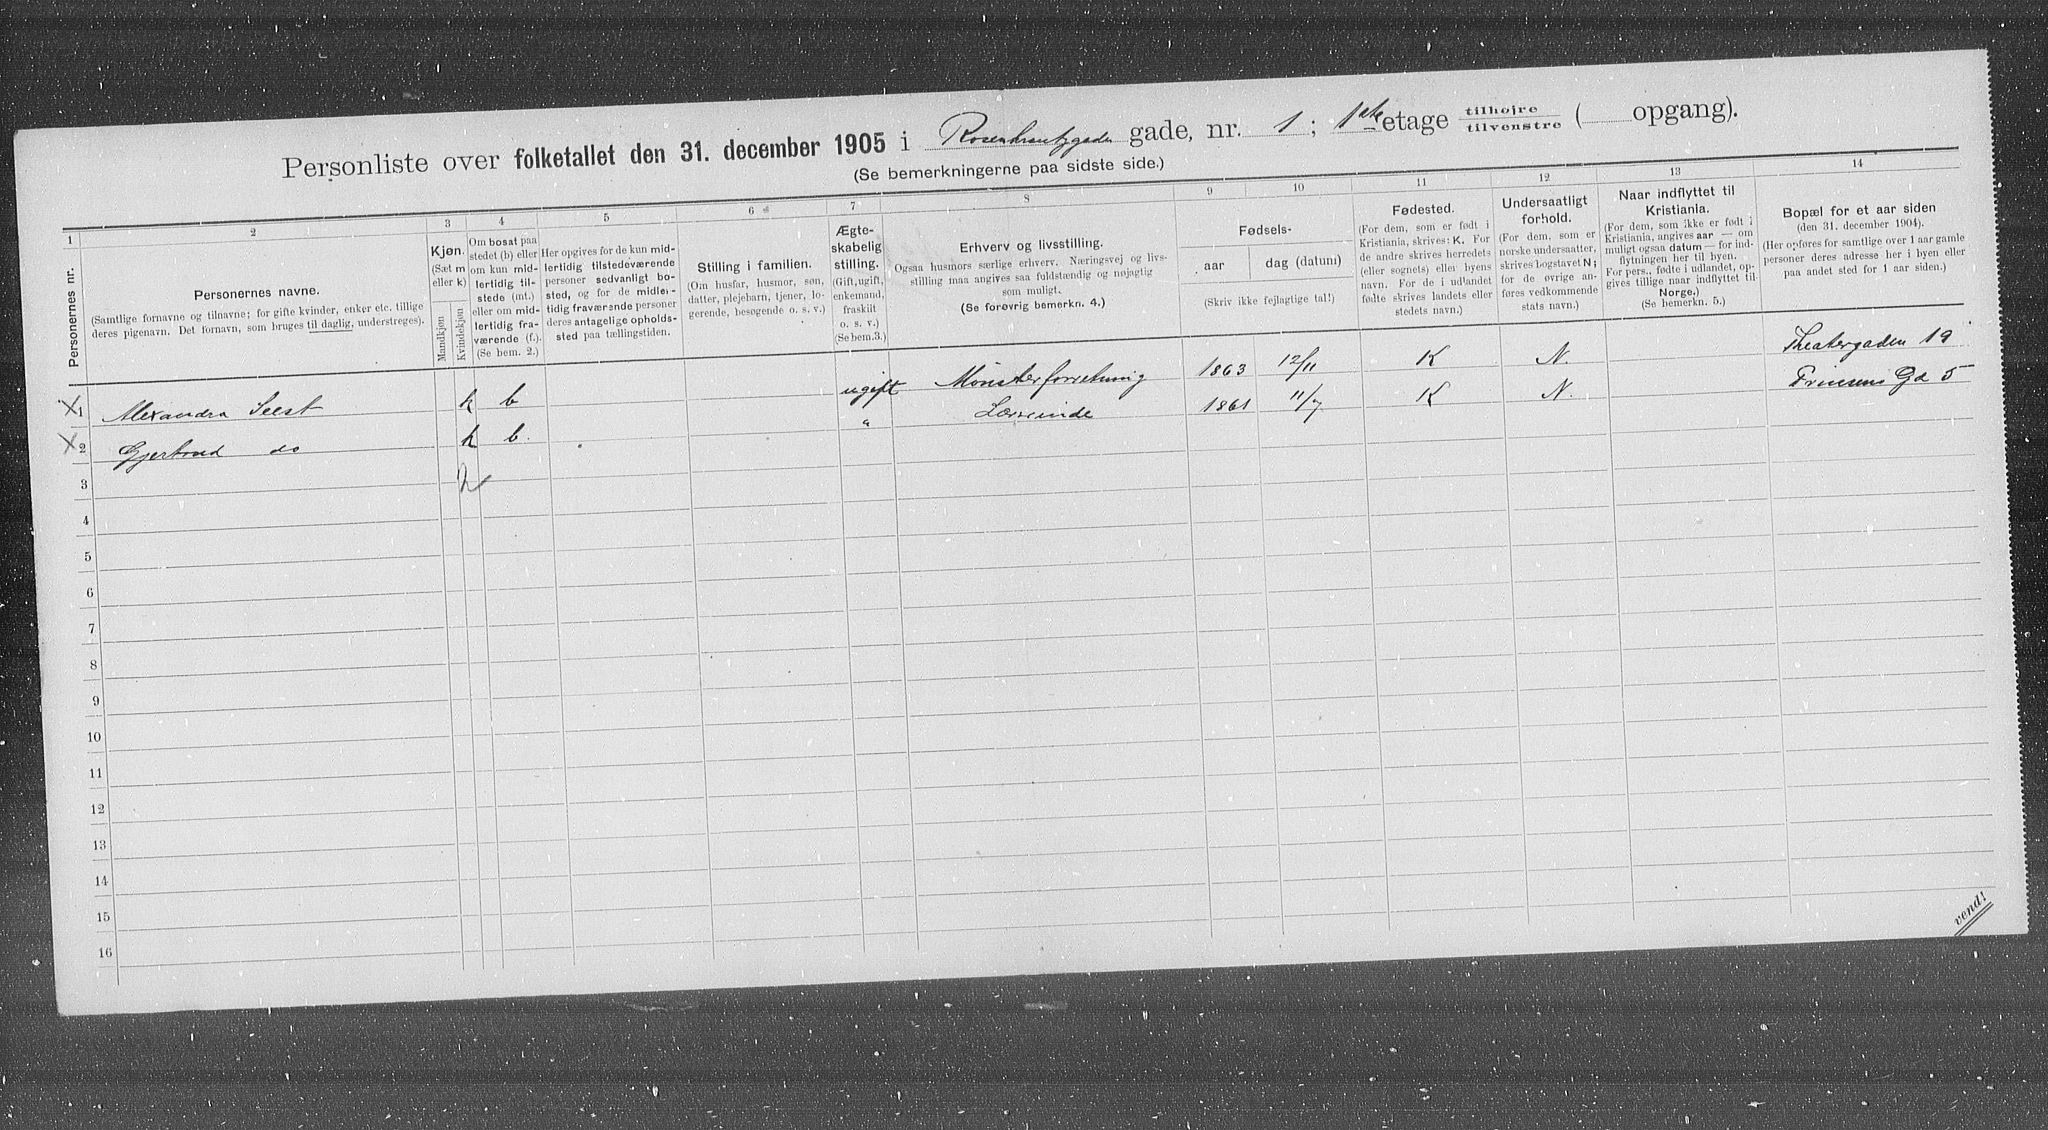 Personliste over folketallet den 31. december 1905 i Rosenkrantzgaden gade, nr. 1; 1ste etage tilhøjre tilvenstre ( opgang).
(Se bemerkningerne paa sidste side.)
1 2 3 4 5 6 7 8 9 10 11 12 13 14
Personernes nr.
Personernes navne.
(Samtlige fornavne og tilnavne; for gifte kvinder, enker etc. tillige
deres pigenavn. Det fornavn, som bruges til daglig, understreges).
Kjøn.
(Sæt m
eller k)
Mandkjøn
Kvindekjøn
Om bosat paa
stedet (b) eller
om kun mid-
lertidig til-
stede (mt.)
eller om mid-
lertidig fra-
værende (f.).
(Se bem. 2.)
Her opgives for de kun mid-
lertidig tilstedeværende
personer sedvanligt bo-
sted, og for de midler-
tidig fraværende personer
deres antagelige opholds-
sted paa tællingstiden.
Stilling i familien.
(Om husfar, husmor, søn,
datter, plejebarn, tjener, lo-
gerende, besøgende o. s. v.)
Ægte-
skabelig
stilling.
(Gift, ugift,
enkemand,
fraskilt
o. s. v.)
(Se bem. 3.)
Erhverv og livsstilling.
Ogsaa husmors særlige erhverv. Næringsvej og livs-
stilling maa angives saa fuldstændig og nøjagtig
som muligt.
(Se forøvrig bemerkn. 4.)
Fødsels-
aar
dag (datum)
(Skriv ikke fejlagtige tal!)
Fødested.
(For dem, som er født i
Kristiania, skrives: K. For
de andre skrives herredets
(eller sognets) eller byens
navn. For de i udlandet
fødte skrives landets eller
stedets navn.)
Undersaatligt
forhold.
(For dem, som er
norske undersaatter,
skrives bogstavet N;
for de øvrige an-
føres vedkommende
stats navn.)
Naar indflyttet til
Kristiania.
(For dem, som ikke er født i
Kristiania, angives aar — om
muligt ogsaa datum — for ind-
flytningen her til byen.
For pers., fødte i udlandet, op-
gives tillige naar indflyttet til
Norge.)
(Se bemerkn. 5.)
Bopæl for et aar siden
(den 31. december 1904).
(Her opføres for samtlige over 1 aar gamle
personer deres adresse her i byen eller
paa andet sted for 1 aar siden.)
X 1 Alexandra Seest k b ugift Mønsterforretning 1863 12/11 K N. Theatergaden 19
X 2 Gjertrud do k b. " Lærerinde 1861 11/7 K N. Prinsens Gd 5
3 2
4
5
6
7
8
9
10
11
12
13
14
15
16
vend!